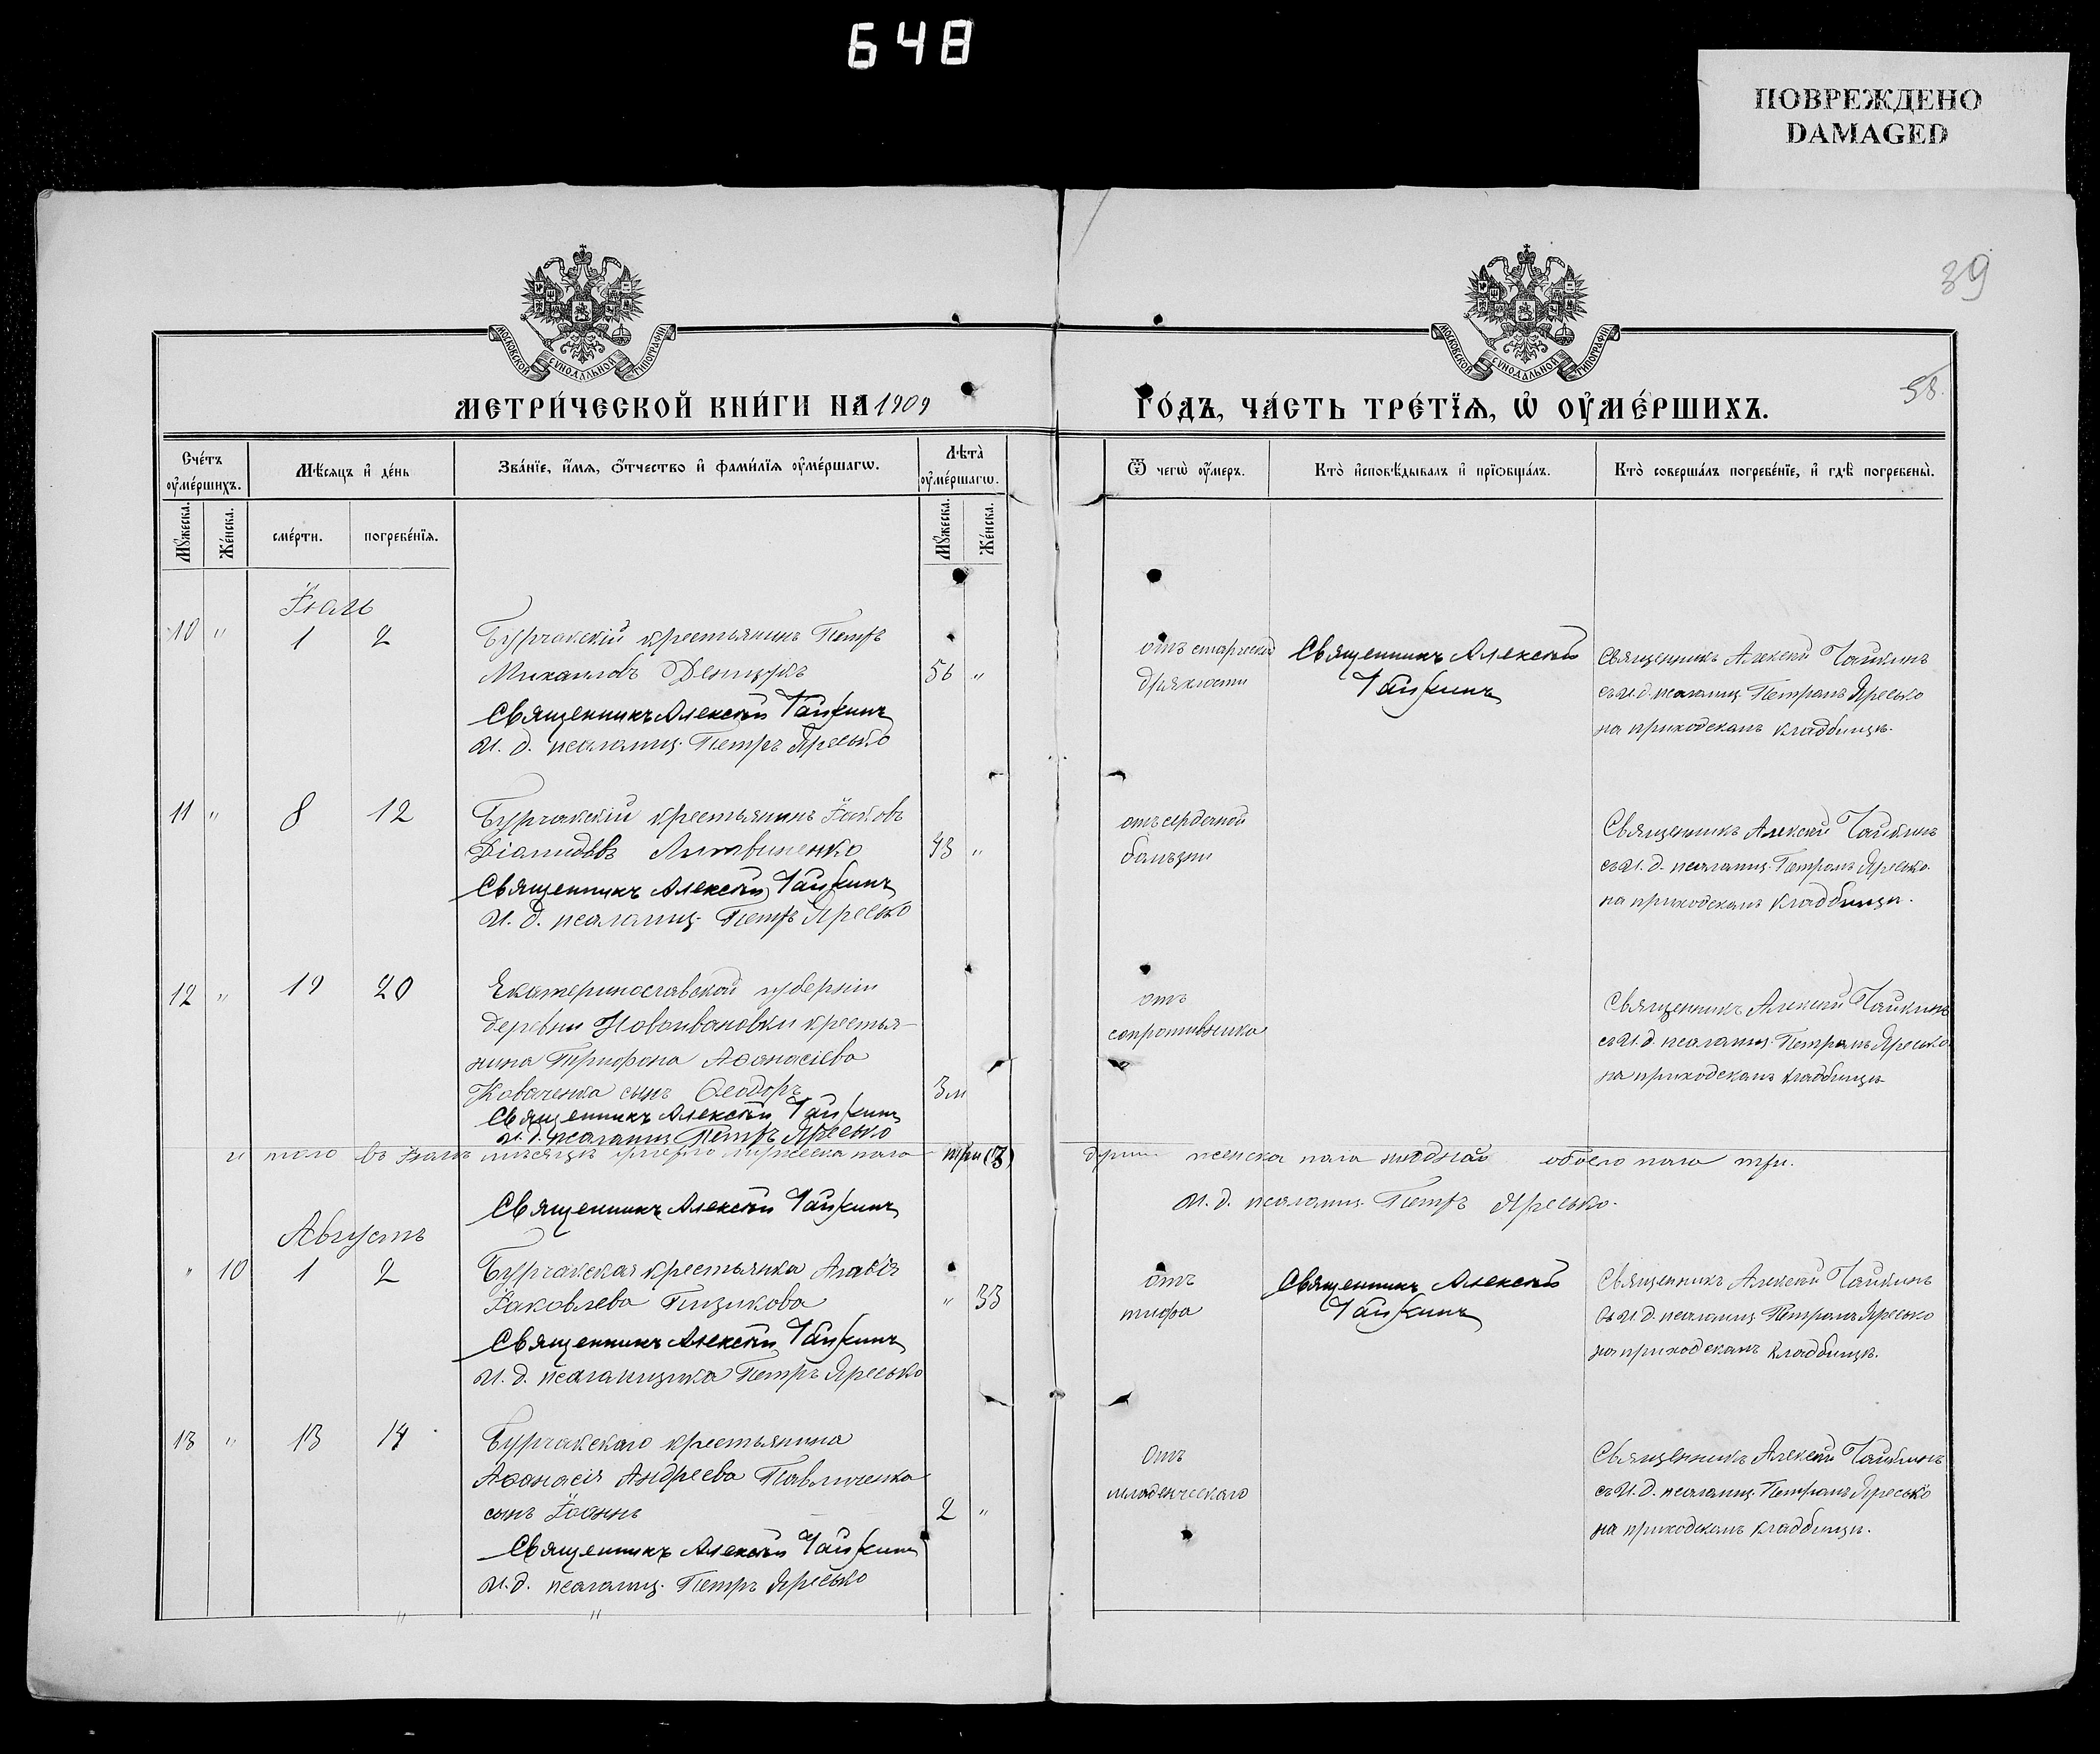 648
ПОВРЕЖДЕНО
DAMAGED
39
58.
МОСКОВСКОЙ СѴНОДАЛЬНОЙ ТИПОГРАФІИ
МОСКОВСКОЙ СѴНОДАЛЬНОЙ ТИПОГРАФІИ
МЕТРИ́ЧЕСКОЙ КНИ́ГИ НА 1909
ГО́ДЪ, ЧА́СТЬ ТРЕ́ТЇѦ, Ѿ ОУ҆МЕ́РШИХЪ.
Сче́тъ оу҆ме́ршихъ.
Мѣ́сѧцъ и҆ де́нь
Зва́нїе, и҆́мѧ, ѻ҆́тчество и҆ фами́лїѧ оу҆ме́ршагѡ.
Лѣ́та оу҆ме́ршагѡ.
Ѿ чегѡ̀ оу҆́меръ.
Кто̀ и҆сповѣ́дывалъ и҆ прїѡбща́лъ.
Кто̀ соверша́лъ погребе́нїе, и҆ гдѣ̀ погребены̀.
Мꙋ́жеска.
Же́нска.
сме́рти.
погребе́нїѧ.
Мꙋ́жеска.
Же́нска.
Іюль
10 " 1 2 Бурчакскій крестьянинъ Петръ
Михаиловъ Денщукъ 56 "
Священникъ Алексѣй Чайкинъ
И. д. псаломщ. Петръ Яресько
отъ старческой
дряхлости
Священникъ Алексѣй
Чайкинъ
Священникъ Алексѣй Чайкинъ
съ И. д. псаломщ. Петромъ Яресько
на приходскомъ кладбищѣ.
11 " 8 12 Бурчакскій крестьянинъ Іаковъ
Діамидовъ Литвиненко 43 "
Священникъ Алексѣй Чайкинъ
И. д. псаломщ. Петръ Яресько
отъ сердечной
болѣзни
Священникъ Алексѣй Чайкинъ
съ И. д. псаломщ. Петромъ Яресько.
на приходскомъ кладбищѣ.
12 " 19 20 Екатеринославской губерніи
деревни Новоивановки крестья-
нина Трифона Аѳонасіева
Коваченка сынъ Ѳеодоръ 3 м
Священникъ Алексѣй Чайкинъ
И. д. псаломщ. Петръ Яресько
отъ
Священникъ Алексѣй Чайкинъ
съ И. д. псаломщ. Петромъ Яресько
на приходскомъ кладбищѣ
и того въ Іюлѣ мѣсяцѣ умерло мужеска пола три (3)
женска пола ни одной обоего пола три.
Священникъ Алексѣй Чайкинъ
И. д. псаломщ. Петръ Яресько.
Августъ
" 10 1 2 Бурчакская крестьянка
Іаковлева " 33
Священникъ Алексѣй Чайкинъ
И. д. псаломщика Петръ Яресько
отъ
тифа
Священникъ Алексѣй
Чайкинъ
Священникъ Алексѣй Чайкинъ
съ И. д. псаломщ. Петромъ Яресько
на приходскомъ кладбищѣ.
13 " 13 14 Бурчакскаго крестьянина
Аѳонасія Андреева Павличенка
сынъ Іоаннъ 2 "
Священникъ Алексѣй Чайкинъ
И. д. псаломщ. Петръ Яресько
отъ
младенческаго
Священникъ Алексѣй Чайкинъ
съ И. д. псаломщ. Петромъ Яресько
на приходскомъ кладбищѣ.